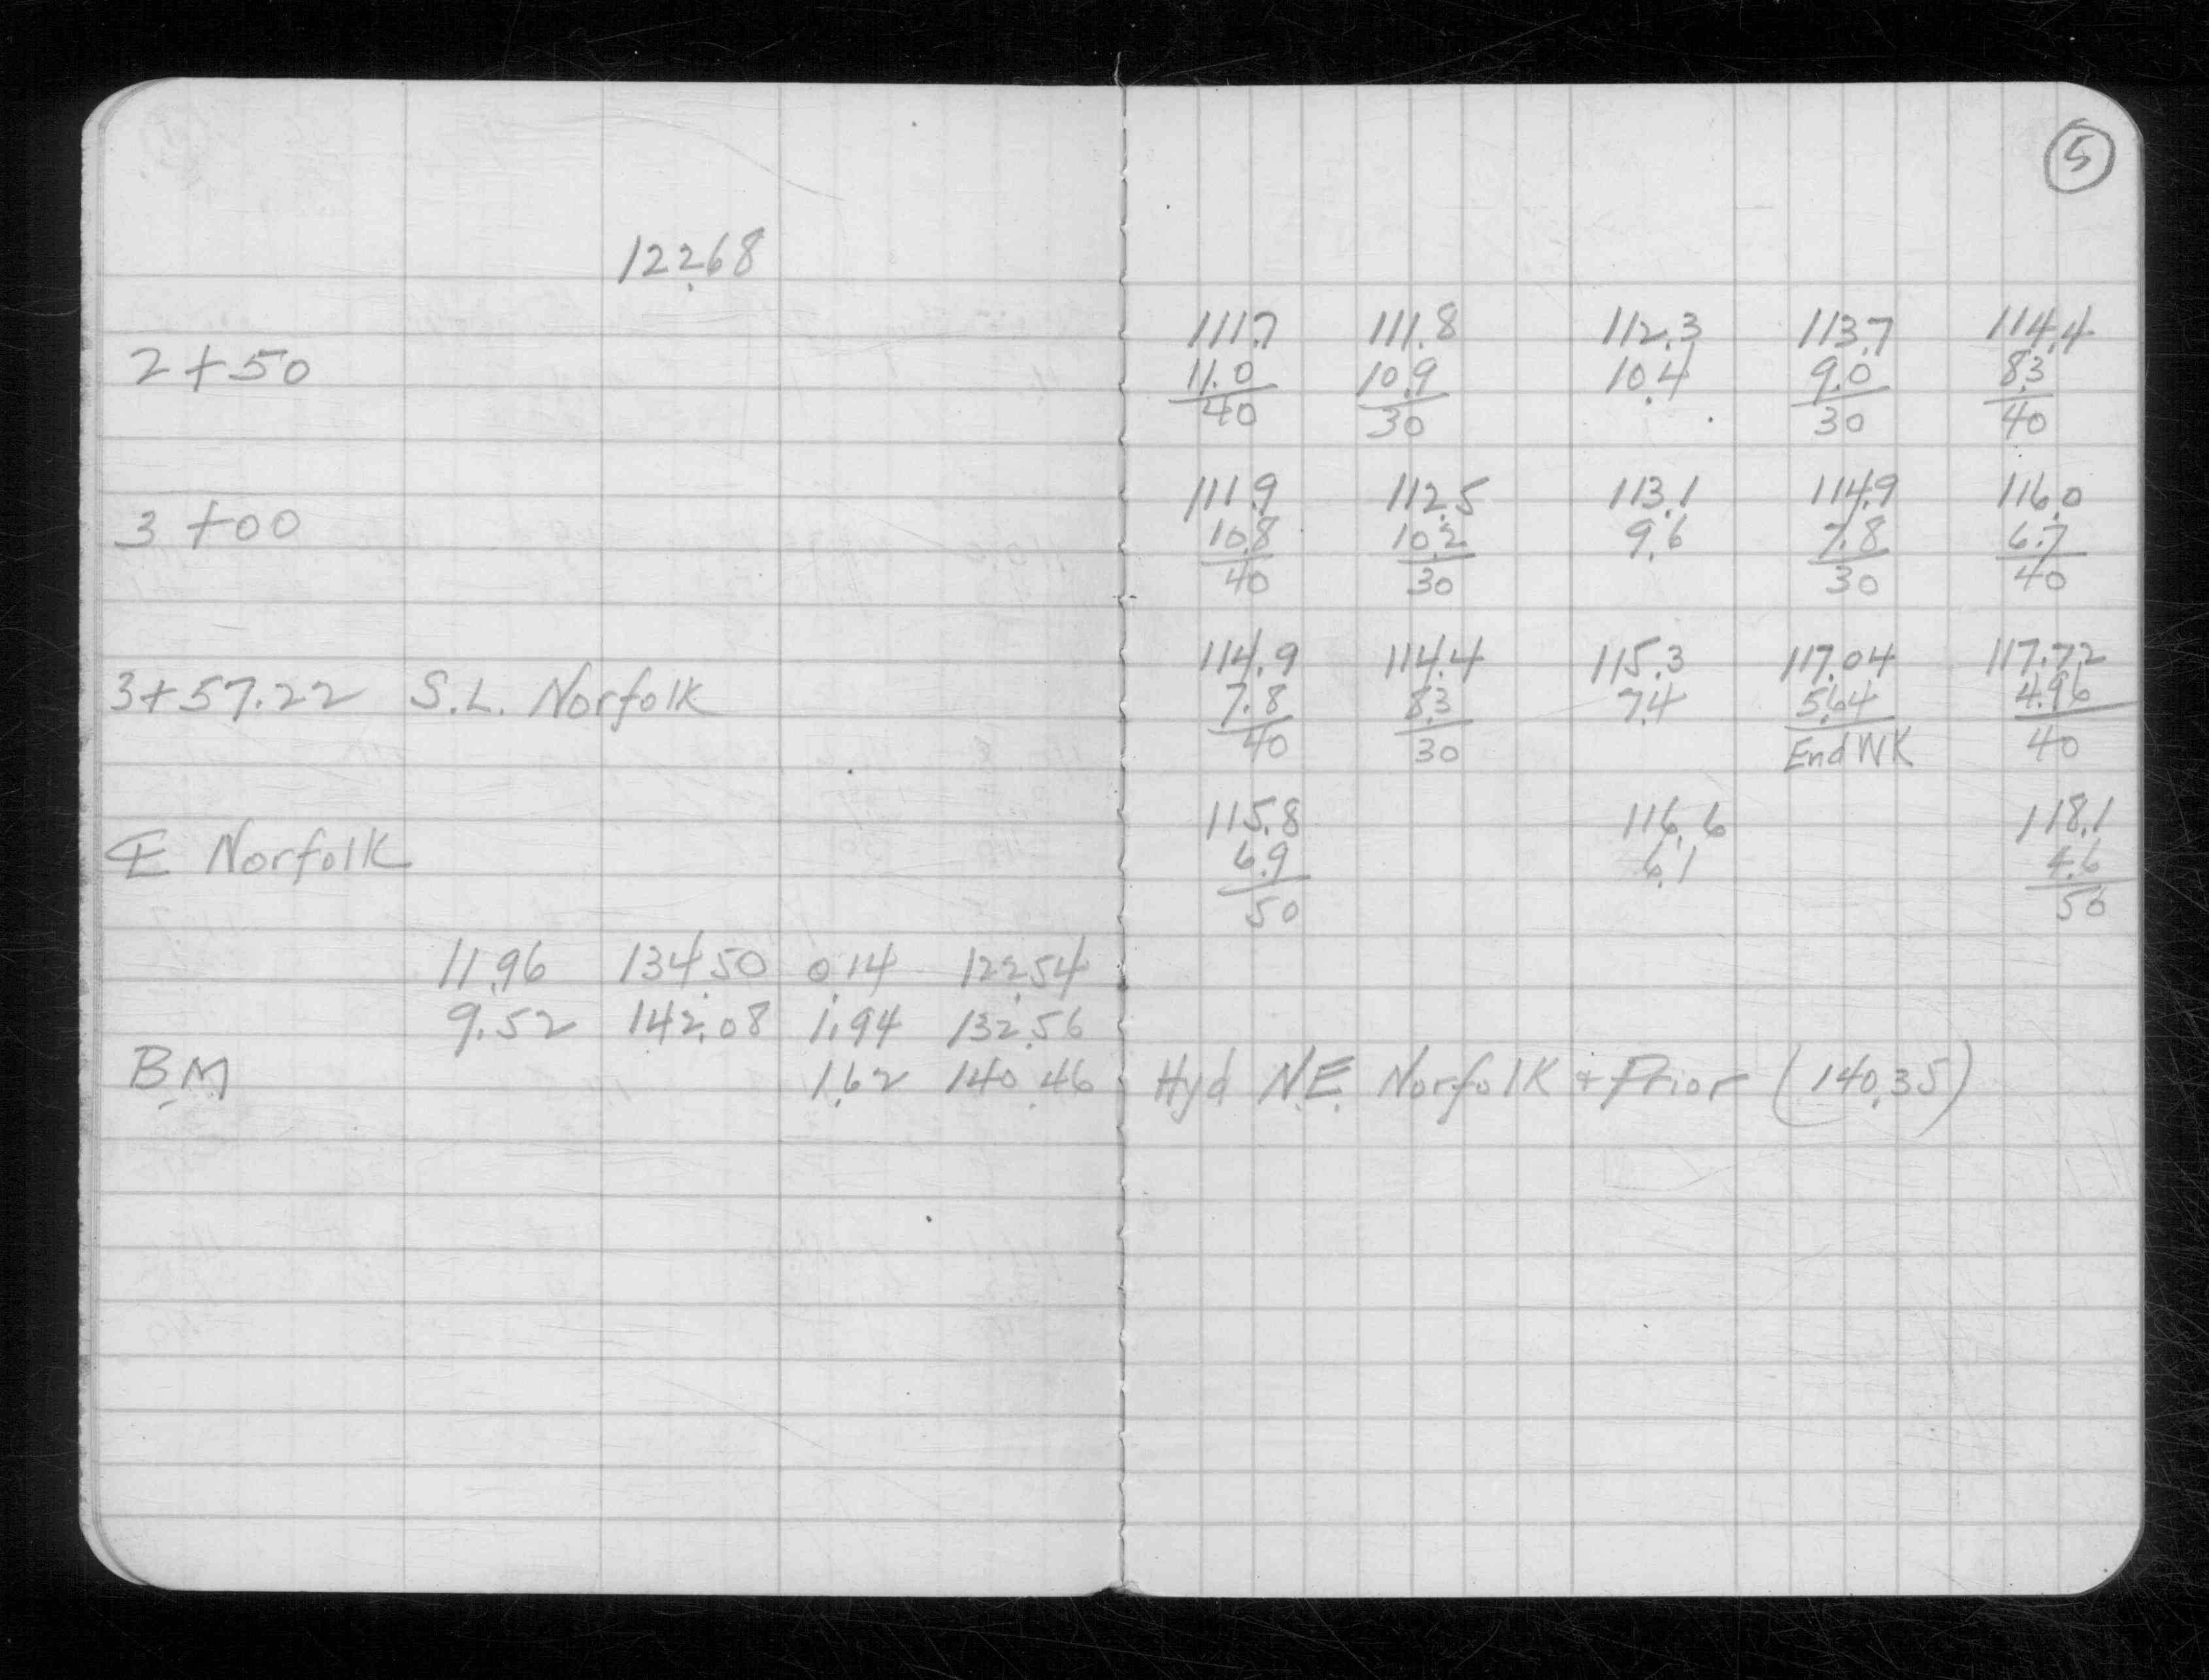 5
122.68
111.7 111.8 112.3 113.7 114.4
2+50 11.0 10.9 10.4 9.0 8.3
40 30 30 40
111.9 112.5 113.1 114.9 116.0
3+00 10.8 10.2 9.6 7.8 6.7
40 30 30 40
114.9 114.4 115.3 117.04 117.72
3+57.22 S.L. Norfolk 7.8 8.3 7.4 5.64 4.96
40 30 End WK 40
115.8 116.6 118.1
℄ Norfolk 6.9 6.1 4.6
50 50
11.96 134.50 0.14 122.54
9.52 142.08 1.94 132.56
B.M. 1.62 140.46 Hyd N.E. Norfolk + Prior (140.35)